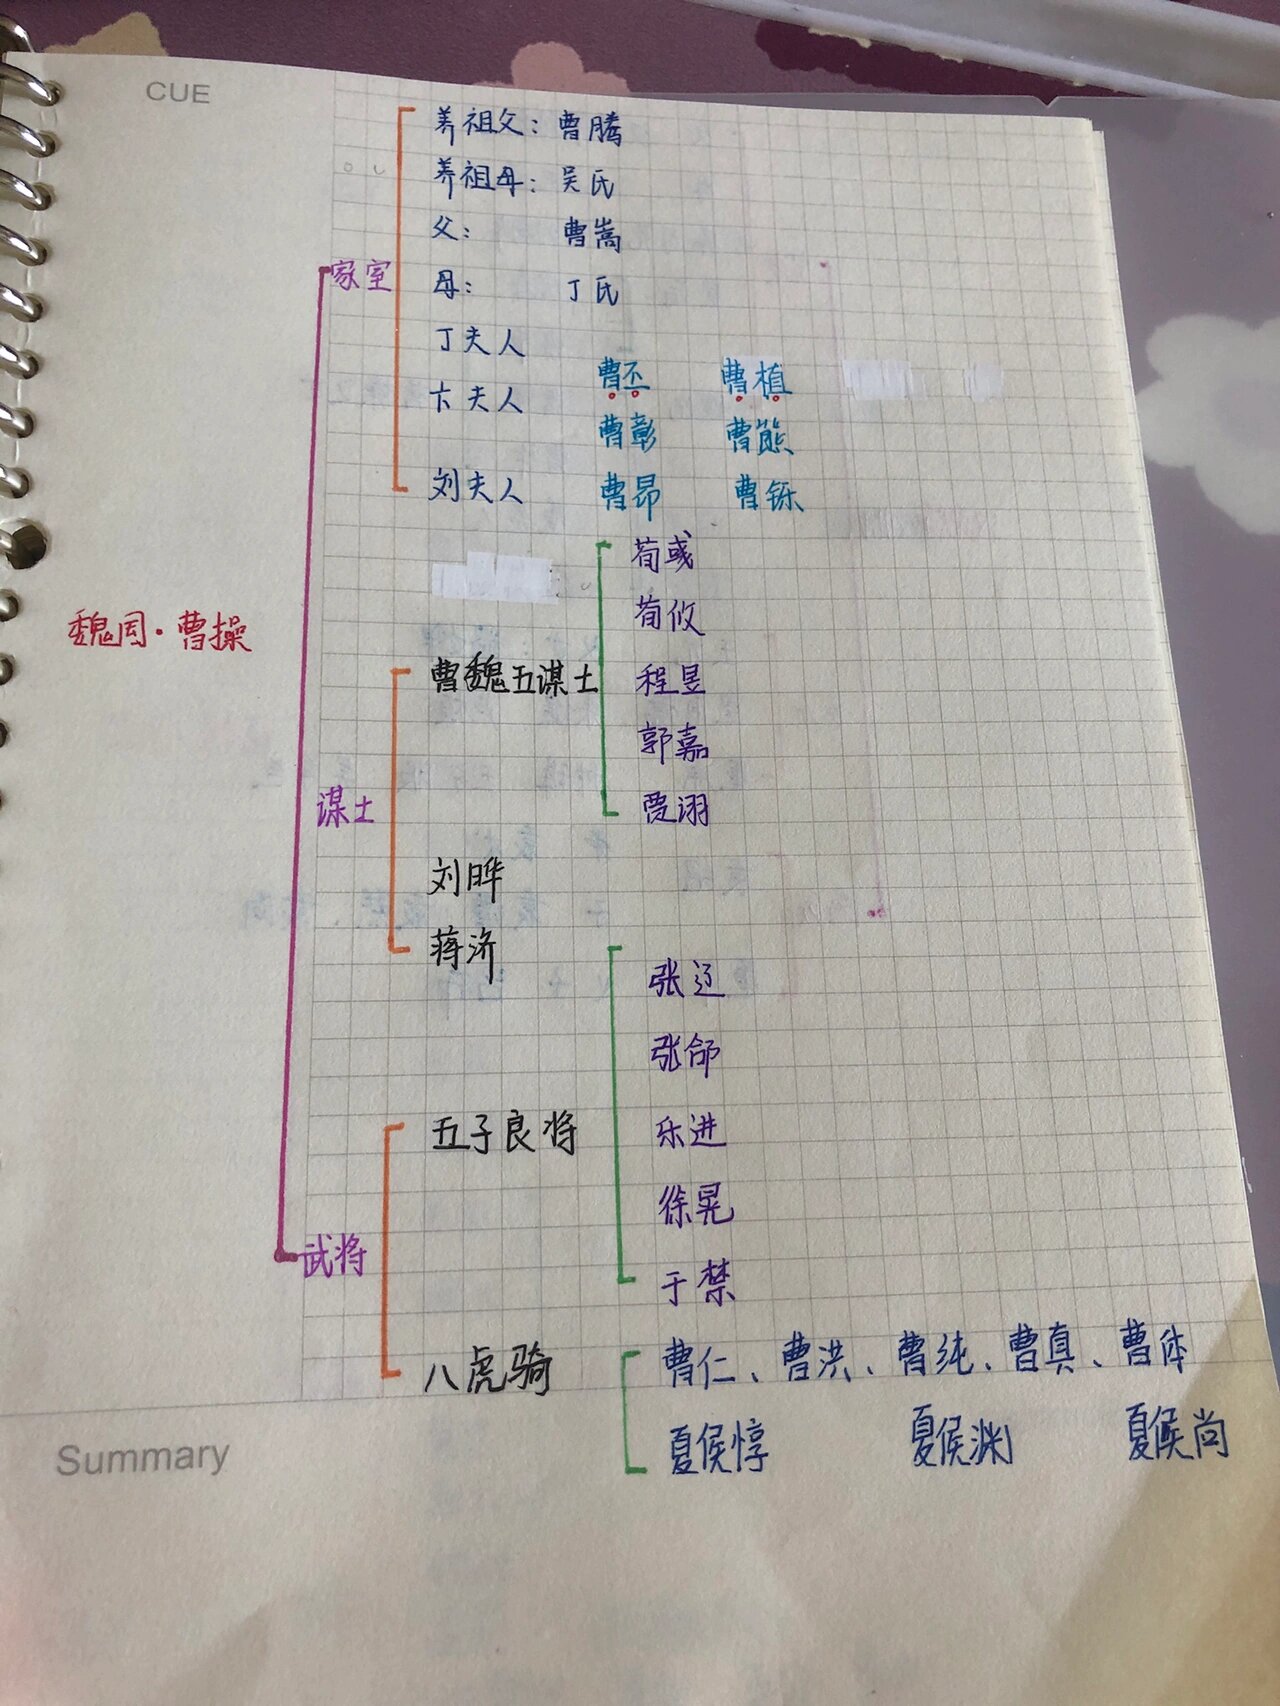 CUE
养祖父：曹腾
养祖母：吴氏
父：曹嵩
家室
母：丁氏
丁夫人
卞夫人 曹丕 曹植
曹彰 曹熊
刘夫人 曹昂 曹铄
荀彧
荀攸
魏国·曹操
曹魏五谋士
程昱
郭嘉
谋士
贾诩
刘晔
蒋济
张辽
张郃
五子良将
乐进
徐晃
武将
于禁
八虎骑
曹仁、曹洪、曹纯、曹真、曹休
夏侯惇 夏侯渊 夏侯尚
Summary